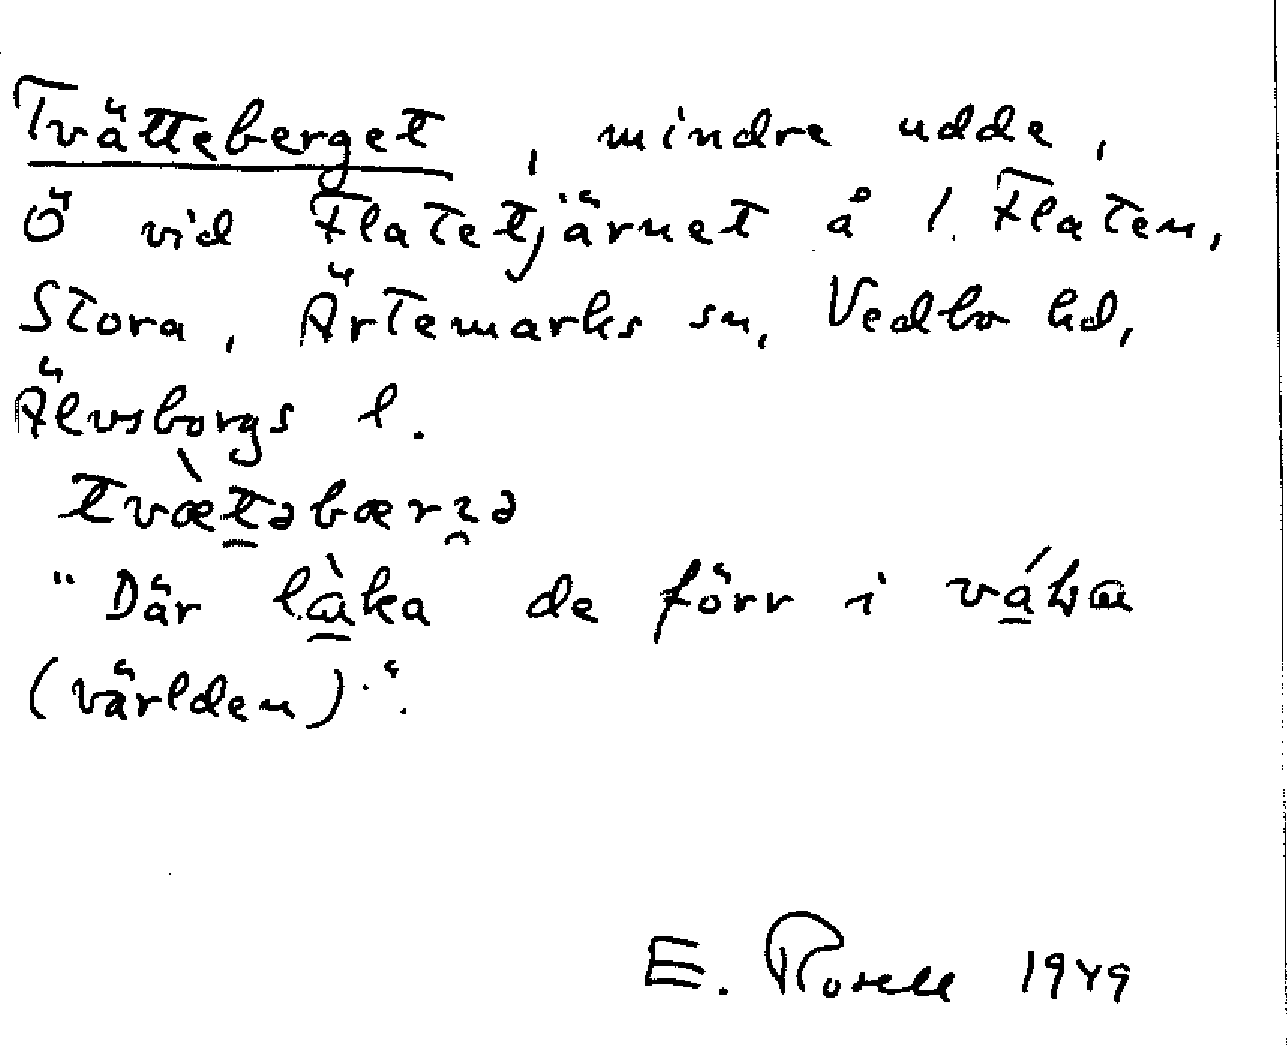 Tvätteberget, mindre udde,
Ö vid Flatetjärnet å l. Flaten,
Stora, Ärtemarks sn, Vedbo hd,
Älvsborgs l.
tvæ̀t̲əbærɀ̯ə
"Där làka de förr i
(världen)."
E. Rosell 1949